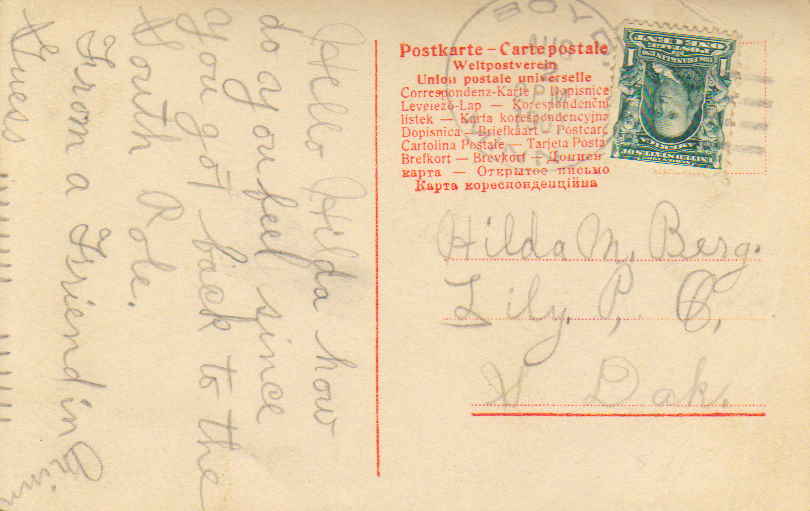 Hello Hilda how
do you feel since
you got back to the
South Pole.
From a Friend in Minn
Guess
Postkarte – Carte postale
Weltpostverein
Union postale universelle
Correspondenz-Karte – Dopisnice
Levelező-Lap — Korespondenční
listek — Karta korespondencyjna
Dopisnica – Briefkaart – Postcard
Cartolina Postale – Tarjeta Postal
Brefkort — Brevkort —
карта — Открытое письмо
Карта кореспонденційна
AUG
PM
Hilda M. Berg.
Lily P. O.
Dak.